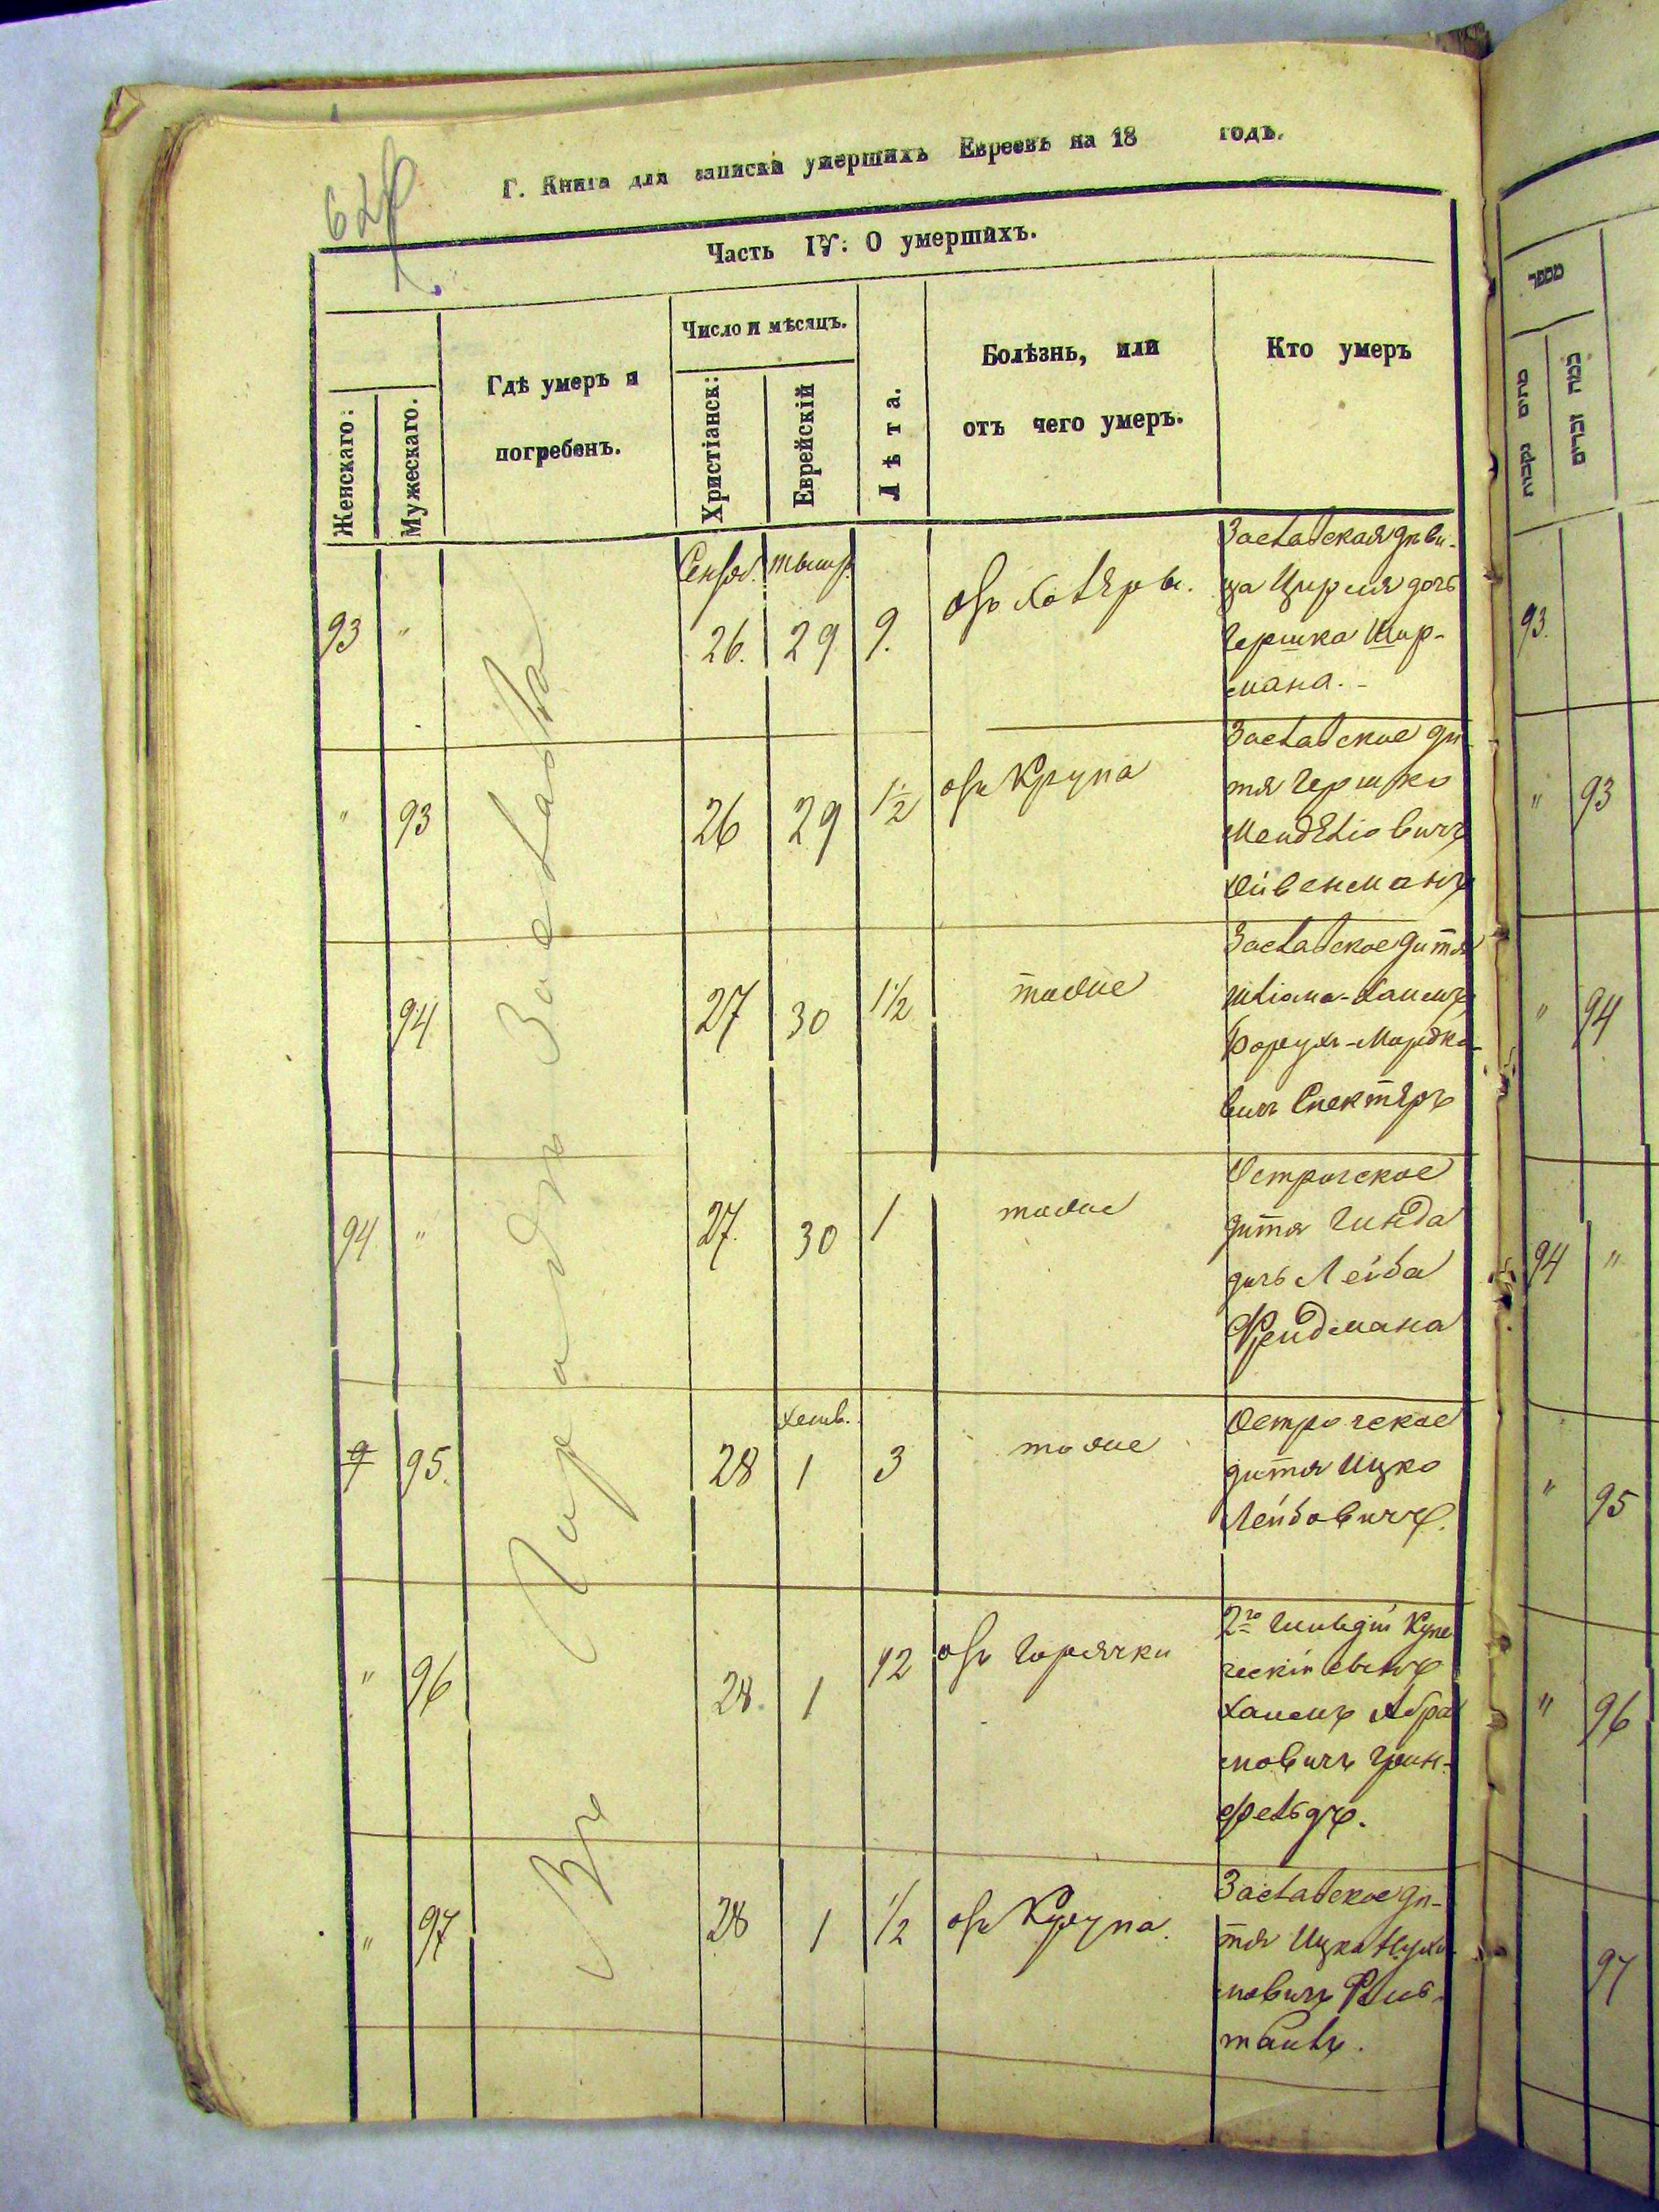 62
Г. Книга для записки умершихъ Евреевъ на 18 годъ.
Часть IV: О умершихъ.
Женскаго:
Мужескаго.
Гдѣ умеръ и
погребенъ.
Число и мѣсяцъ.
Христіанск:
Еврейскій
Лѣта.
Болѣзнь, или
отъ чего умеръ.
Кто умеръ
Въ Заславлѣ
Сентяб. тышр.
93 " 26. 29 9. отъ холѣры.
Заславская дѣви-
ца Цирля дочь
Гершка Шир-
мана.-
" 93 26 29 1½ отъ Крупа
Заславское ди-
тя Гершко
Менделіовичъ
94 27 30 1½ тоже
Заславское дитя
Шліома-Хаимъ
Борухъ-Мордко-
вичъ Спектяръ
94 " 27. 30 1 тоже
Острогское
дитя Гинда
дочь Лейба
Фридмана
хешв.
9 95. 28 1 3 тоже
Острогское
дитя Ицко
Лейбовичъ.
" 96 28. 1 42 отъ Горячки
2го Гильдіи Купе
ческій сынъ
Хаимъ Абра
мовичъ Грин-
фельдъ.
" 97 28 1 ½ отъ Крупа.
Заславское ди-
тя Ицко Нухи-
мовичъ
מספר
מתים נקבות
כמה זכרים
93.
" 93
" 94
94 "
" 95
" 96
97